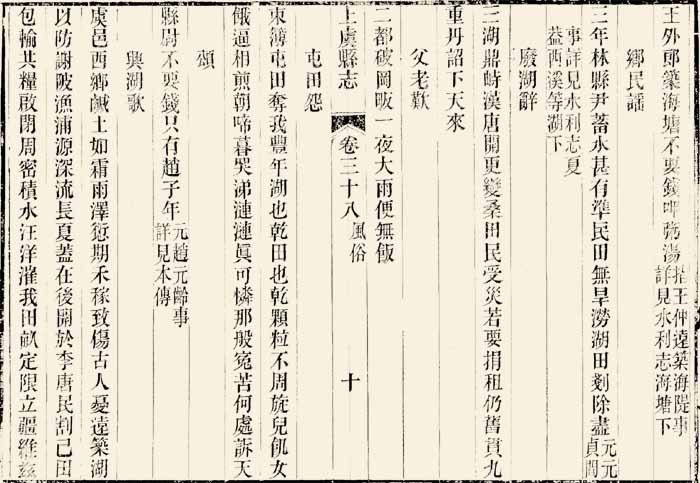 王外郎築海塘不要錢呷粥湯指王仲遠築海隄事詳見水利志海塘下
鄉民謠
三年林縣尹蓄水甚有準民田無旱澇湖田剗除盡元元貞間
事詳見水利志夏葢西溪等湖下
廢湖辭
三湖鼎峙漢唐開更變桑田民受災若要捐租仍舊貫九
重丹詔下天來
父老歎
二都破岡畈一夜大雨便無飯
上虞縣志 卷三十八 風俗 十
屯田怨
東簿屯田奪我豐年湖也乾田也乾顆粒不周旋兒飢女
餓逼相煎朝啼暮哭涕漣漣眞可憐那般寃苦何處訴天
頌
縣尉不要錢只有趙子年元趙元齡事詳見本傳
與湖歌
虞邑西鄉鹹土如霜雨澤愆期禾稼致傷古人憂遠築湖
以防謝陂漁浦源深流長夏葢在後開於李唐民割己田
包輸其糧啟閉周密積水汪洋灌我田畝定限立疆維茲